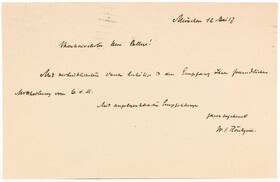 München 12 Mai 17
Hochverehrter Herr College!
Mit verbindlichstem Danke bestätige den Empfang Ihrer freundlichen
Mittheilung vom 6 d. M.
Mit ausgezeichneter Empfehlung
ganz ergebenst
W. C. Röntgen.